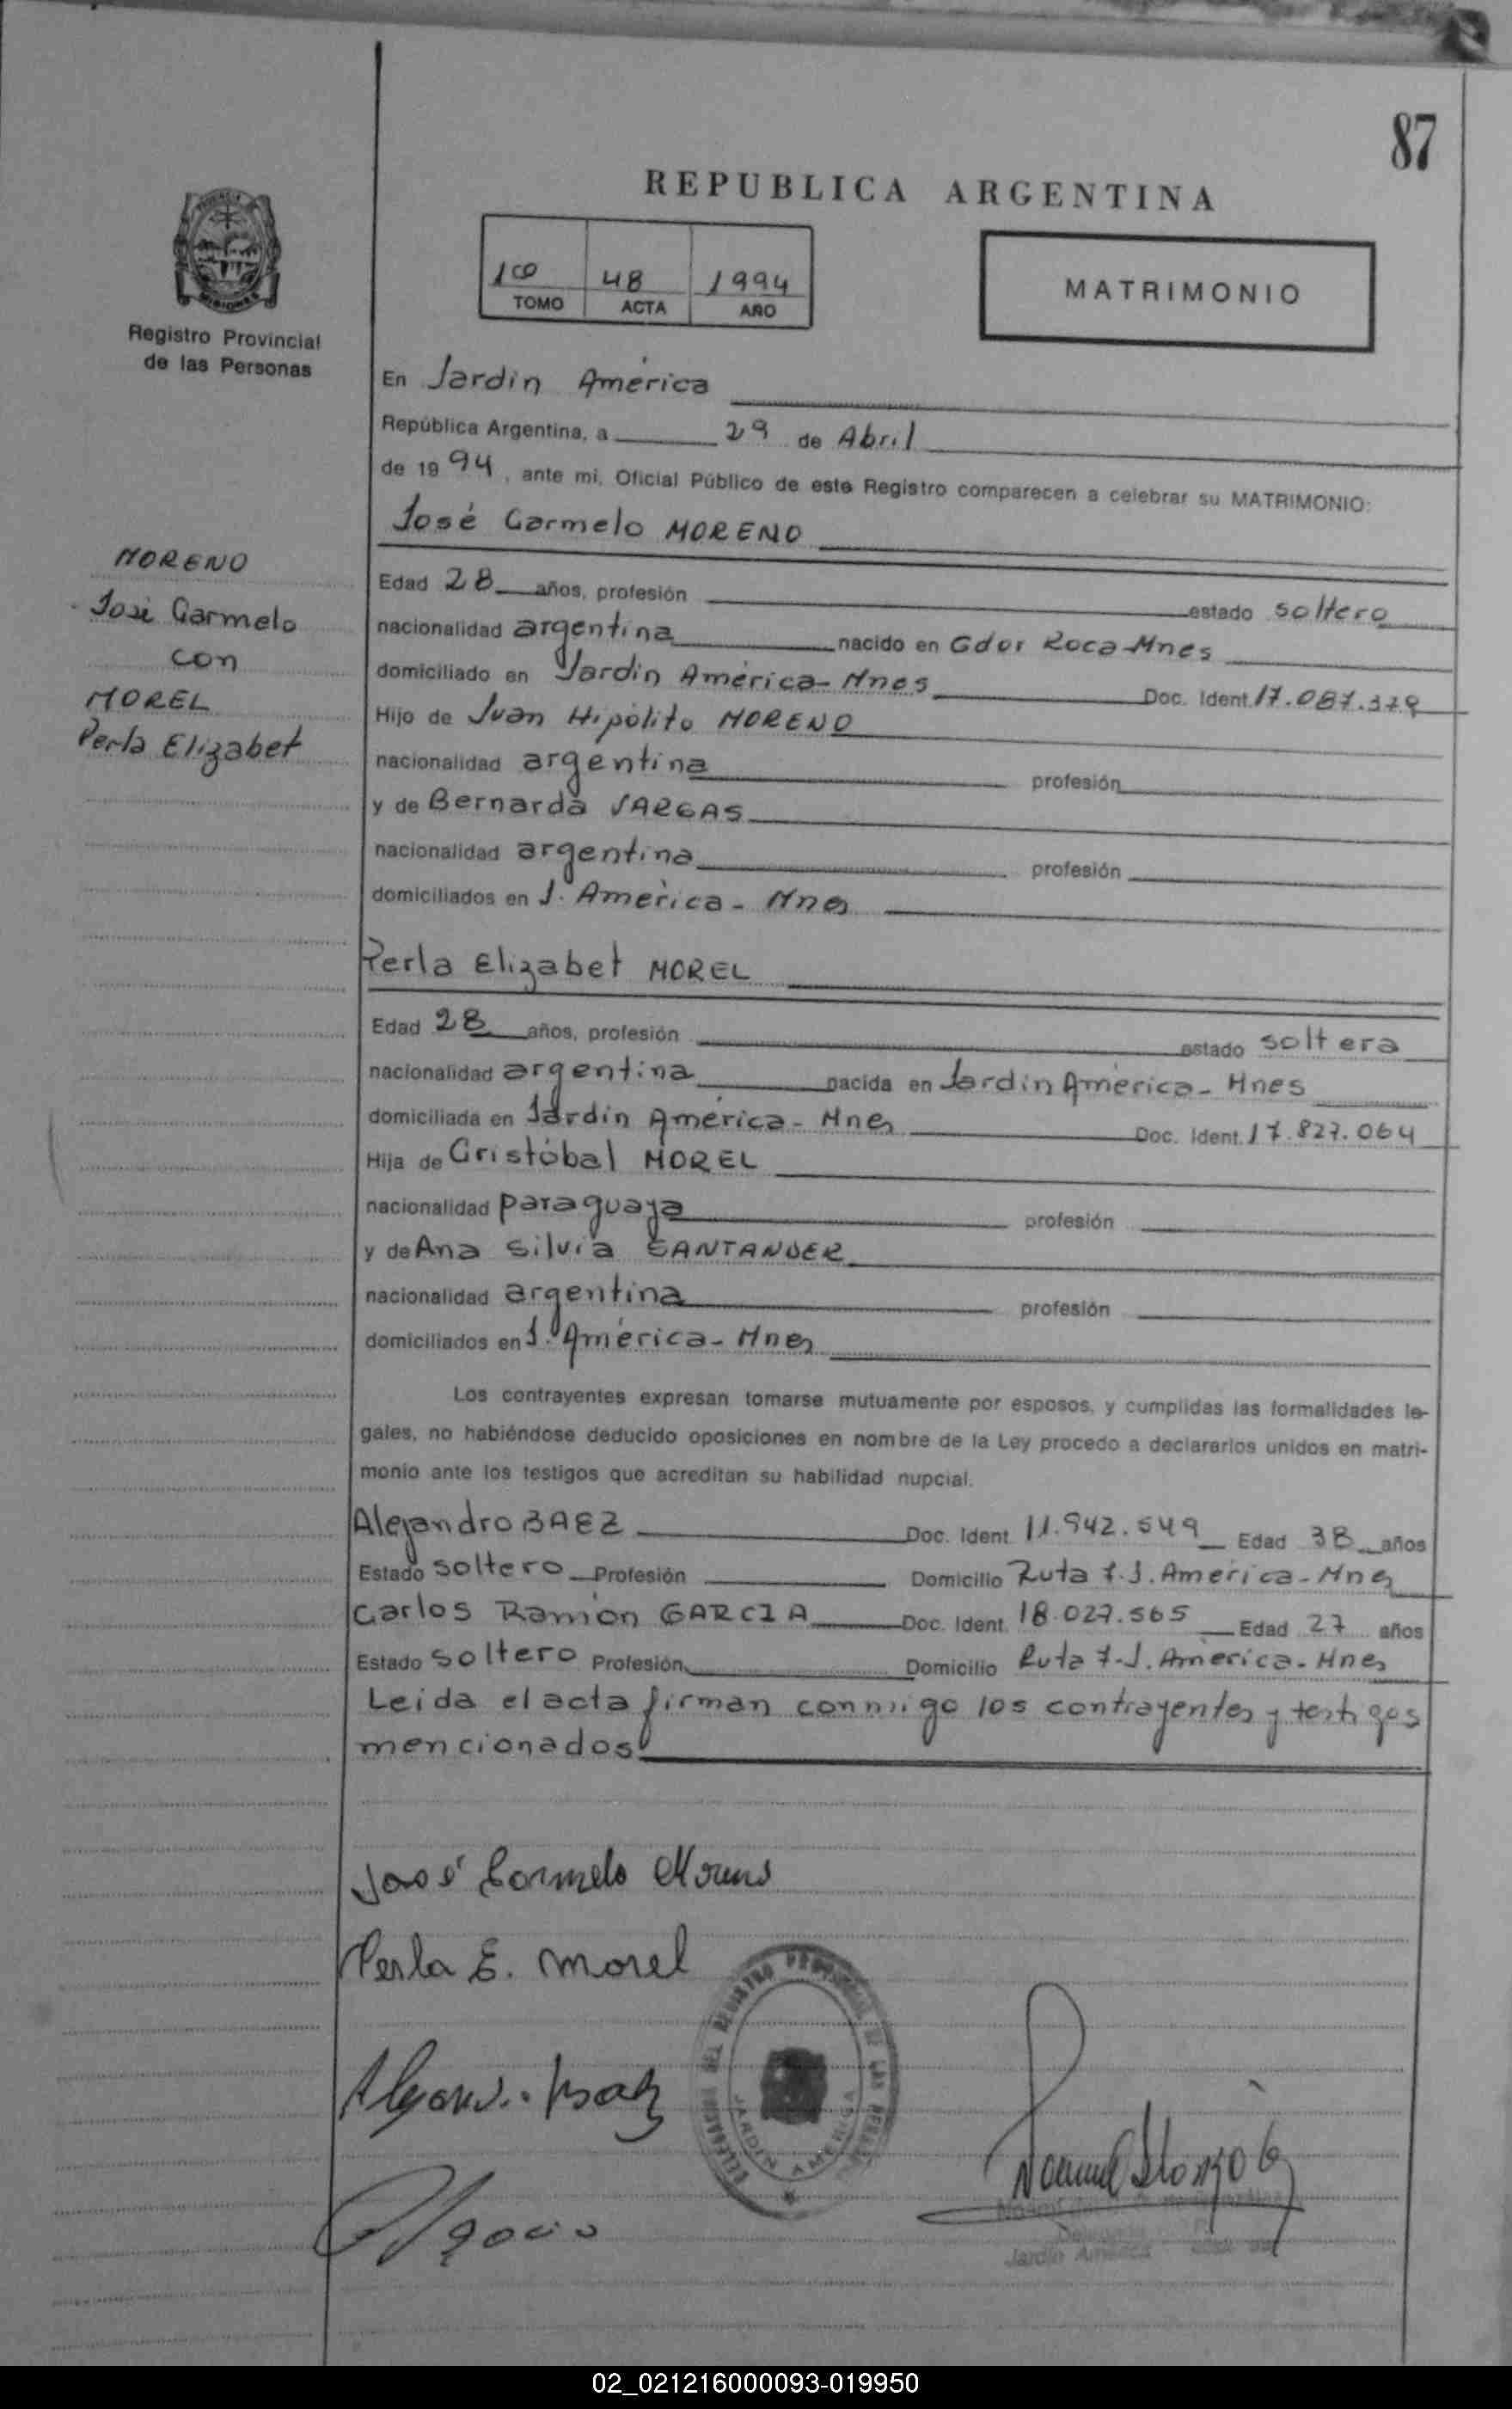 87
REPUBLICA ARGENTINA
1º 48 1994
TOMO ACTA AÑO
MATRIMONIO
MISIONES
Registro Provincial
de las Personas
En Jardín América
República Argentina, a 29 de Abril
de 1994, ante mi, Oficial Público de este Registro comparecen a celebrar su MATRIMONIO:
José Carmelo MORENO
MORENO
José Carmelo
con
MOREL
Perla Elizabet
Edad 28 años, profesión estado soltero
nacionalidad argentina nacido en Gdor Roca-Mnes
domiciliado en Jardín América-Mnes Doc. Ident. 17.087.379
Hijo de Juan Hipólito MORENO
nacionalidad argentina profesión
y de Bernarda VARGAS
nacionalidad argentina profesión
domiciliados en J. América - Mnes
Perla Elizabet MOREL
Edad 28 años, profesión estado soltera
nacionalidad argentina nacida en Jardín América - Mnes
domiciliada en Jardín América - Mnes Doc. Ident. 17.827.064
Hija de Cristóbal MOREL
nacionalidad paraguaya profesión
y de Ana Silvia SANTANDER
nacionalidad argentina profesión
domiciliados en J. América - Mnes
Los contrayentes expresan tomarse mutuamente por esposos, y cumplidas las formalidades le-
gales, no habiéndose deducido oposiciones en nombre de la Ley procedo a declararlos unidos en matri-
monio ante los testigos que acreditan su habilidad nupcial.
Alejandro BAEZ Doc. Ident. 11.942.549 Edad 38 años
Estado soltero Profesión Domicilio Ruta 7.J. América-Mnes
Carlos Ramón GARCIA Doc. Ident. 18.027.565 Edad 27 años
Estado soltero Profesión Domicilio Ruta 7-J. América-Mnes
Leida el acta firman conmigo los contrayentes y testigos
mencionados
José Carmelo Moreno
Perla E. Morel
DELEGACION DEL REGISTRO PROVINCIAL DE LAS PERSONAS
JARDIN AMERICA
Jardín América
02_021216000093-019950